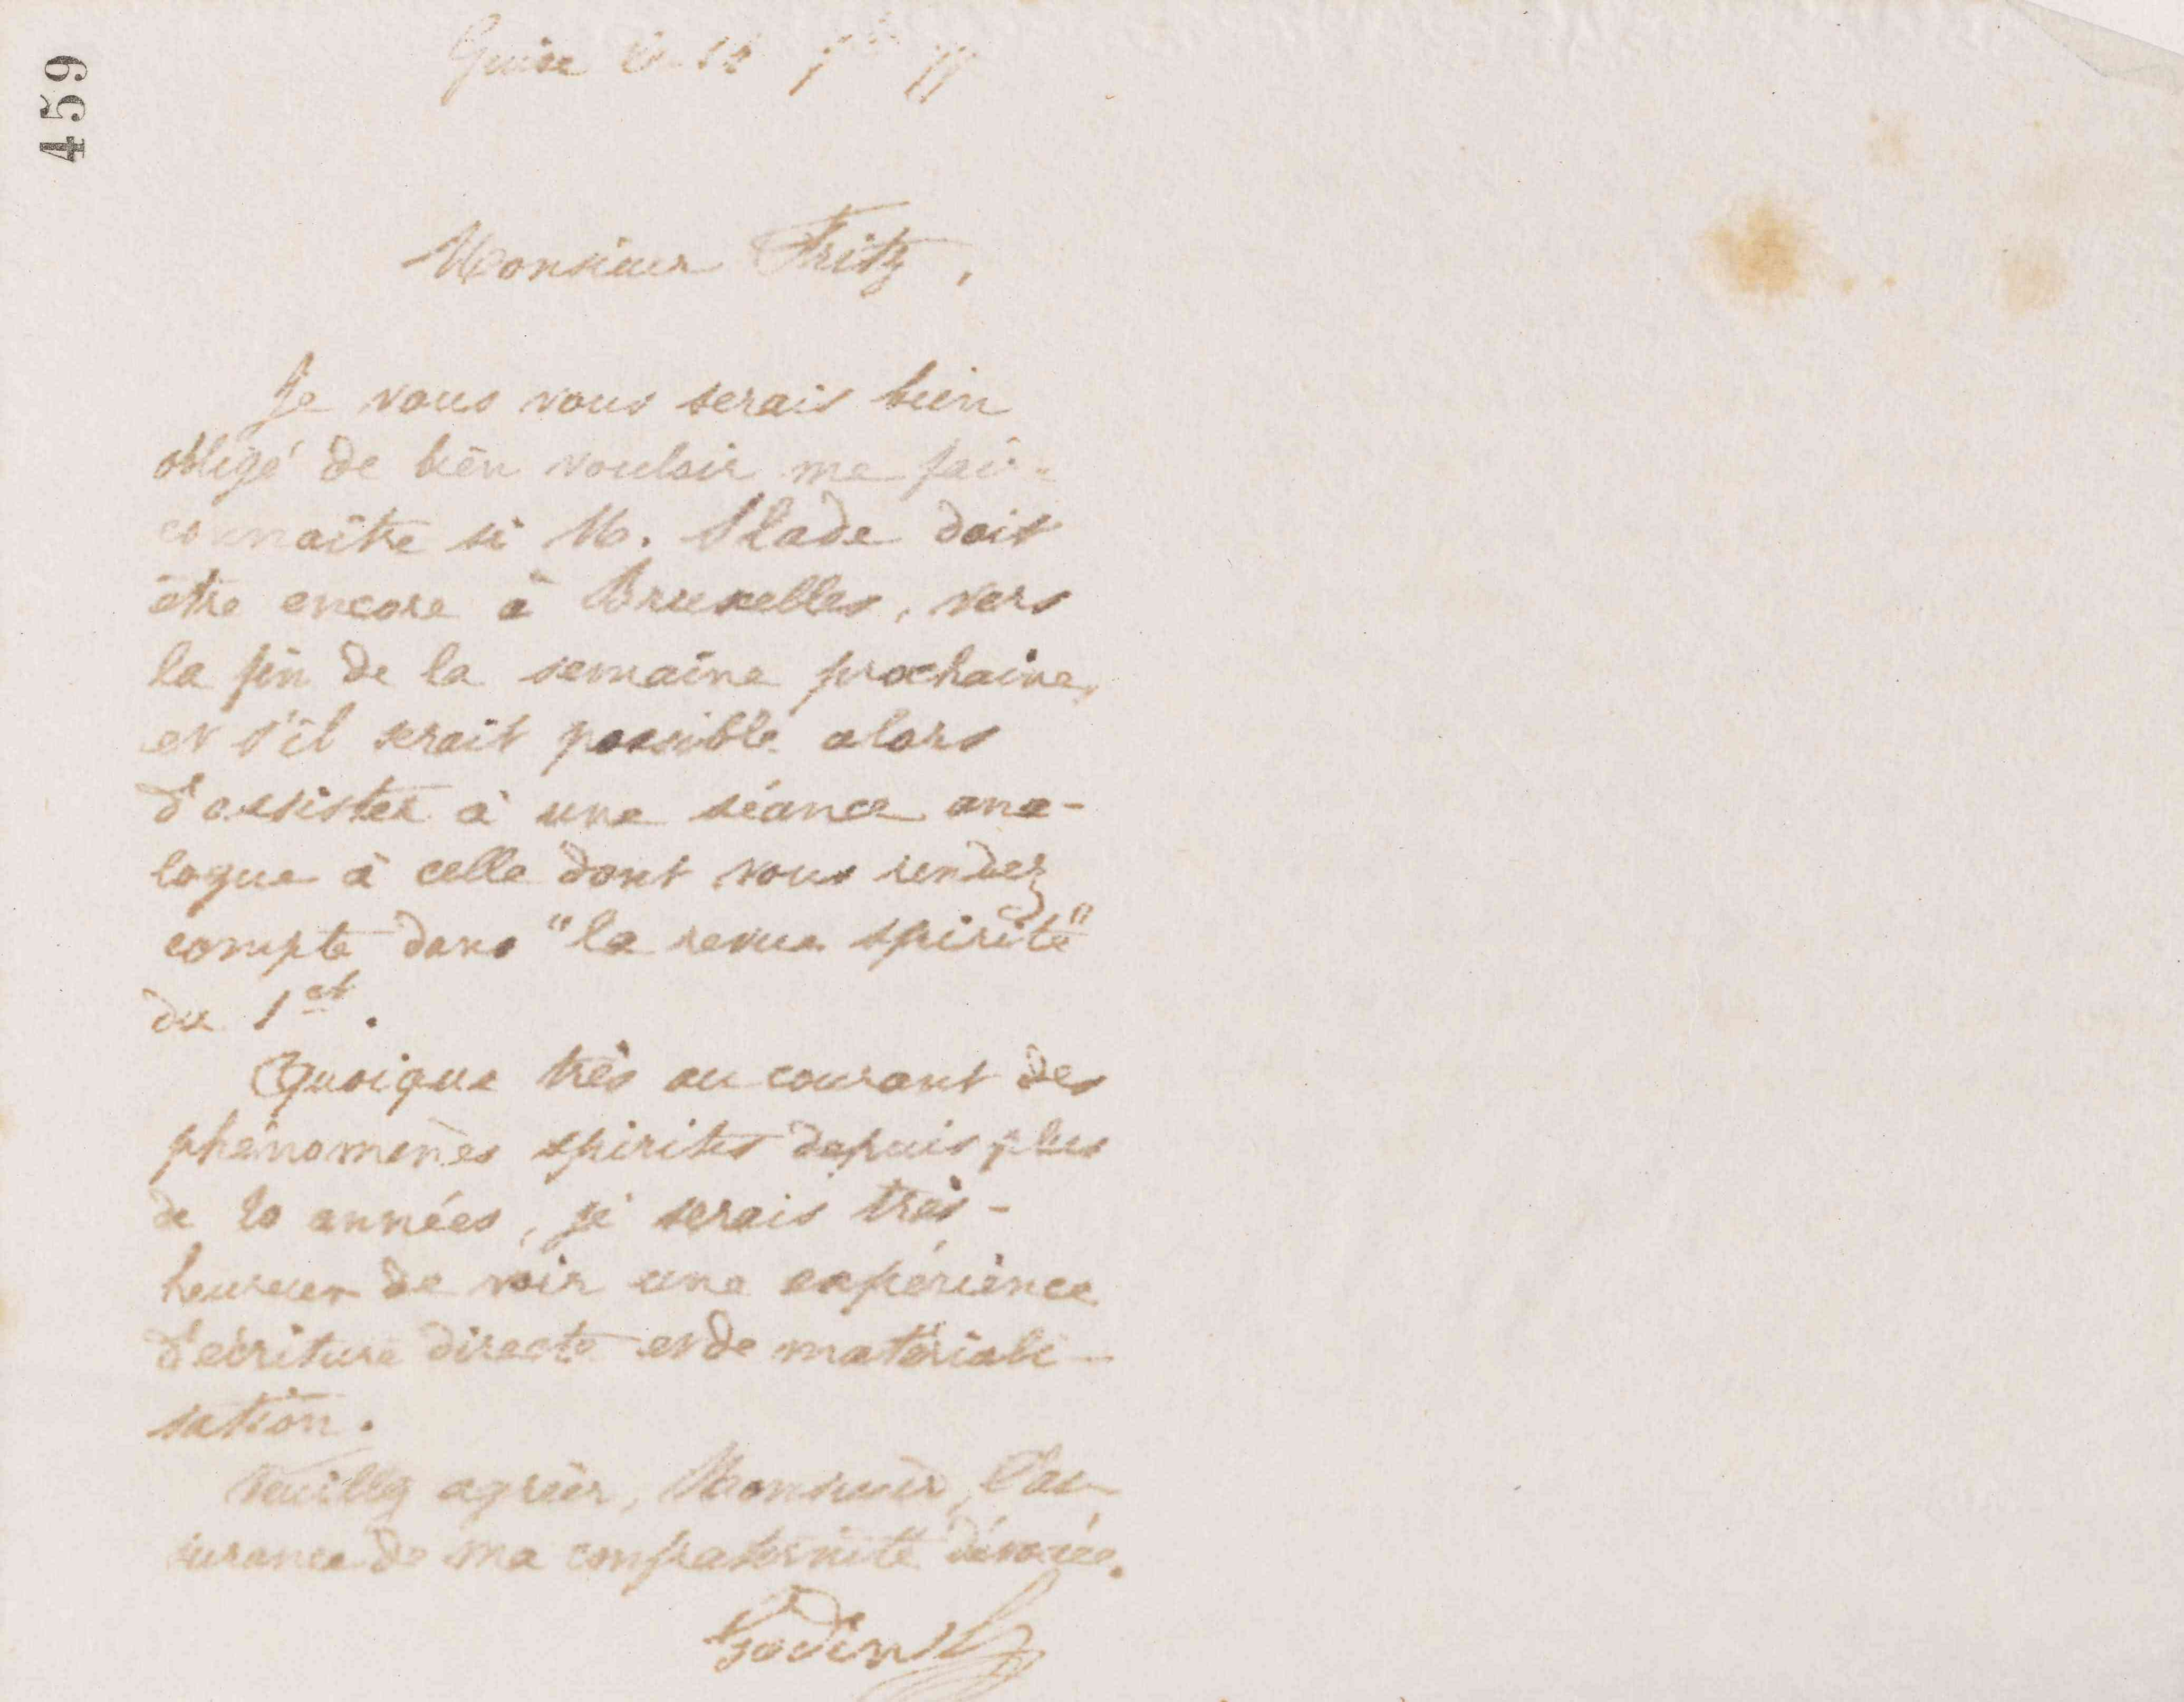 459
Guise le 14 7bre 77
Monsieur Fritz,
Je vous vous serais bien
obligé de bien vouloir me faire
connaître si M. Slade doit
être encore à Bruxelles, vers
la fin de la semaine prochaine,
et s'il serait possible alors
d'assister à une séance ana-
logue à celle dont vous rendez
compte dans "la revue spirite"
du 1er.
Quoique très au courant des
phénomènes spirites depuis plus
de 20 années, je serais très-
heureux de voir une expérience
d'écriture directe et de matériali-
sation.
Veuillez agréer, Monsieur, l'as-
surance de ma confraternité dévouée.
Godin